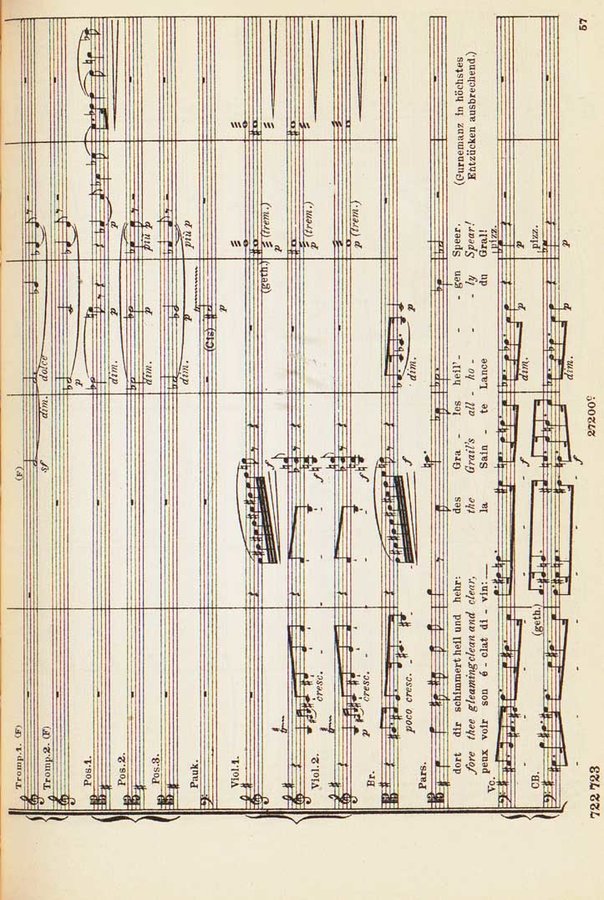 (F)
Tromp.1. (F)
sf dim. dolce
Tromp.2. (F)
p
Pos.1.
dim. p p
Pos.2.
dim. p più p
Pos.3.
dim. p più p
Pauk.
(Cis) p
Viol.1.
(geth.) (trem.)
p
cresc. f p (trem.)
Viol.2.
p cresc. f p (trem.)
Br.
poco cresc. dim. p
Pars.
dort dir schimmert heil und hehr: des Gra - les heil'- - - gen Speer. (Gurnemanz in höchstes
fore thee gleaming clean and clear, the Grail's all - ho - - - ly Spear! Entzücken ausbrechend.)
peux voir son é - clat di - vin: la Sain - te Lance du Gral!
Vc.
pizz.
f dim. p p
(geth.) pizz.
CB.
f dim. p p
722 723 27200c 57